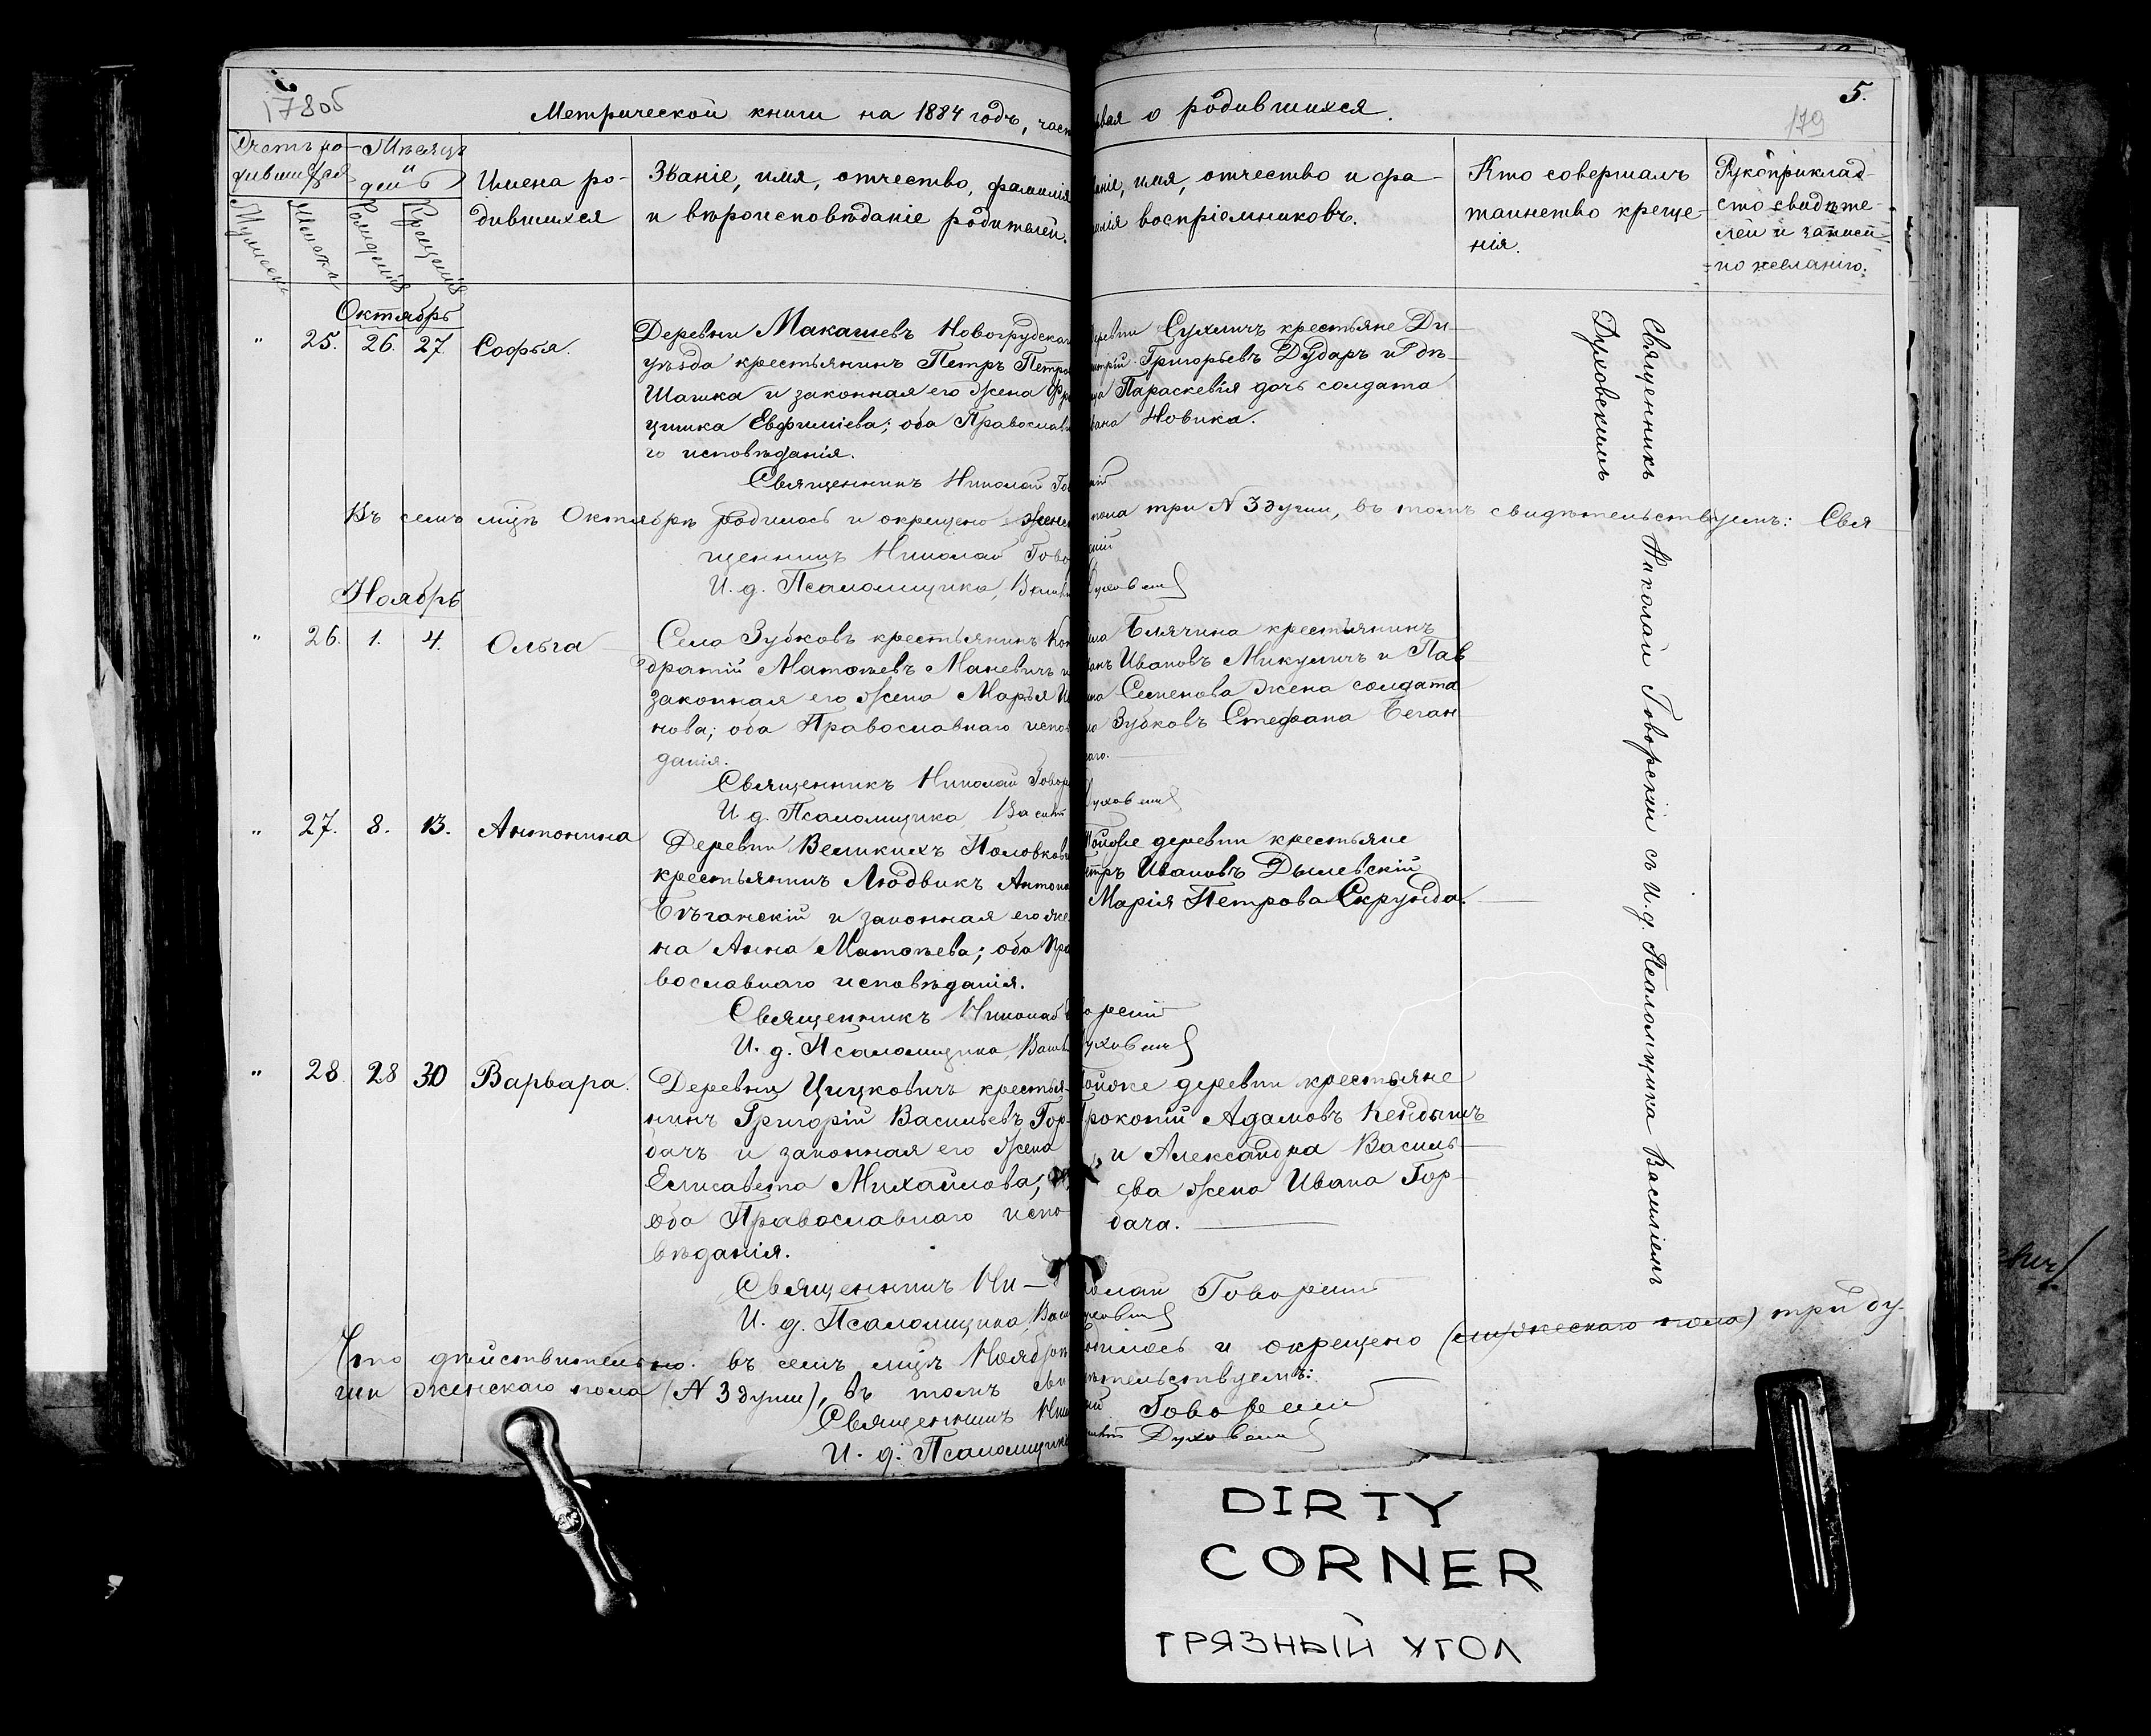 178 об
5.
179
Метрической книги на 1884 годъ, часть первая о родившихся.
Счетъ ро-
дившихся
Мужеска
Женска
Мѣсяцъ
и
день
Рожденія
Крещенія
Имена ро-
дившихся
Званіе, имя, отчество, фамилія
и вѣроисповѣданіе родителей.
Званіе, имя, отчество и фа-
милія воспріемниковъ.
Кто совершалъ
таинство креще-
нія.
Рукоприклад-
ство свидѣте-
лей и записи
по желанію.
Октябрь
" 25. 26. 27. Софья.
Деревни Макашевъ Новогрудскаго
уѣзда крестьянинъ Петръ Петро
Шашка и законная его жена Фр
цишка Евфиміева; оба Православн
го исповѣданія.
Священникъ Николай Говорскій
деревни Сухличъ крестьяне Ди-
митрій Григорьевъ Дударъ и дѣ-
вица Параскевія дочь солдата
Новика.
Въ семъ мцѣ Октябрѣ родилось и окрещено женск пола три N 3 души, въ томъ свидѣтельствуемъ: Свя
щенникъ Николай Говорскій
И. д. Псаломщика, Василій Духовскій
Ноябрь
" 26. 1. 4. Ольга
Села Зубковъ крестьянинъ Кон
дратій Матѳѣевъ Маневичъ и
законная его жена Марья И
нова; оба Православнаго испов
данія.
Священникъ Николай Говорскій
И. д. Псаломщика, Василій Духовскій
села Блячина крестьянинъ
Ивановъ Микуличъ и Пав
Семенова жена солдата
Зубковъ Стефана Беган
скаго.
" 27. 8. 13. Антонина
Деревни Великихъ Половкович
крестьянинъ Людвикъ Антоно
Бѣганскій и законная его же-
на Анна Матѳѣева; оба Пра
вославнаго исповѣданія.
Священникъ Николай Говорскій
И. д. Псаломщика, Василій Духовскій
Тойже деревни крестьяне
Петръ Ивановъ Дышевскій
Марія Петрова Скрунда.
" 28. 28 30 Варвара.
Деревни Цицковичъ крестья-
нинъ Григорій Васильевъ Гор-
бачъ и законная его жена
Елисавета Михайлова;
оба Православнаго испо-
вѣданія.
Священникъ Николай Говорскій
И. д. Псаломщика, Василій Духовскій
Тойже деревни крестьяне
Прокопій Адамовъ Кейдышъ
и Александра Василь-
ева жена Ивана Гор-
бача.
Что дѣйствительно въ семъ мцѣ Ноябрѣ родилось и окрещено (мужескаго пола) три ду-
ши женскаго пола (N 3 души), въ томъ свидѣтельствуемъ:
Священникъ Николай Говорскій
И. д. Псаломщика Василій Духовскій
Священникъ Николай Говорскій съ И. д. Псаломщика Василіемъ
Духовскимъ
DIRTY
CORNER
ГРЯЗНЫЙ УГОЛ